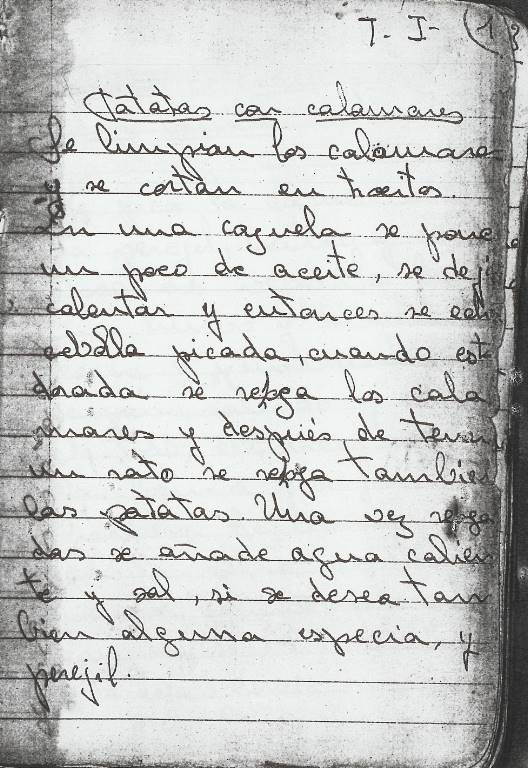 T-I- 13
Patatas con calamares
Se limpian los calamares
y se cortan en trocitos.
En una cazuela se pone
un poco de aceite, se deja
calentar y entonces se echa
cebolla picada, cuando está
dorada se rehoga los cala
mares y después de tener
un rato se rehoga también
las patatas. Una vez rehoga
das se añade agua calien
te y sal, si se desea tam
bien alguna especia, y
perejil.